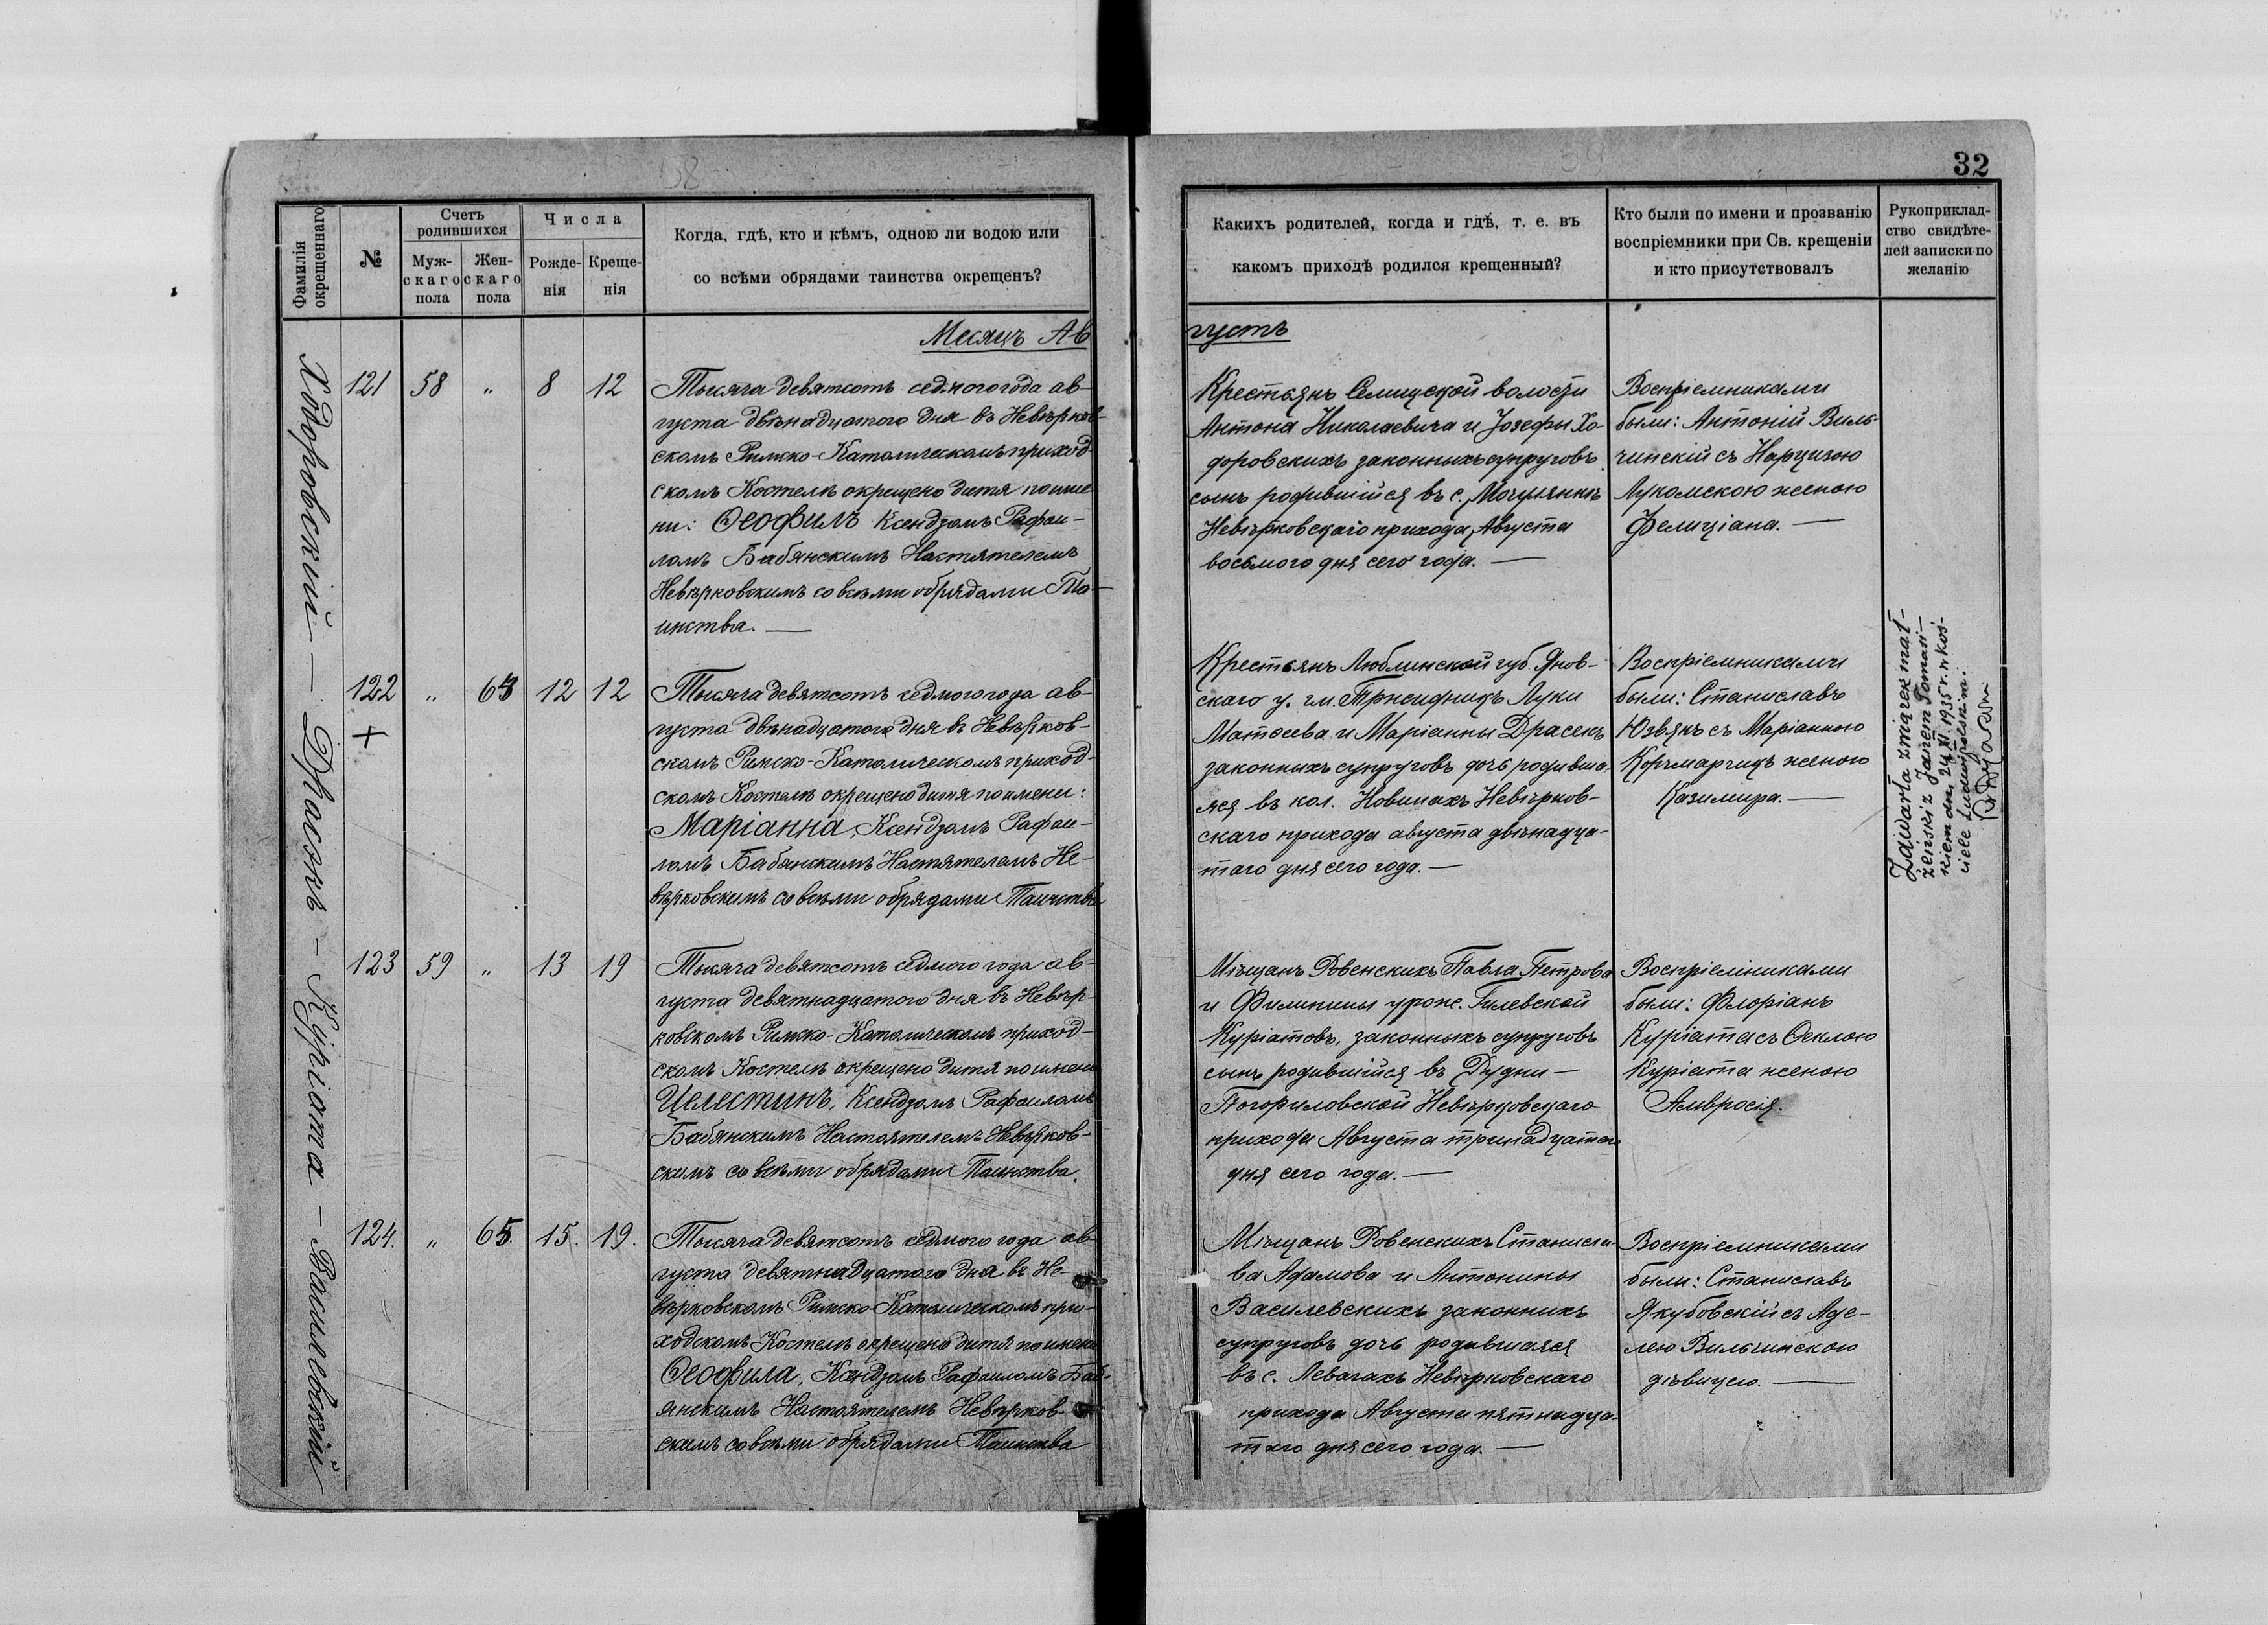 32
Фамилія окрещеннаго
№
Счетъ родившихся
Муж-скаго пола
Жен-скаго пола
Числа
Рожде-нія
Креще-нія
Когда, гдѣ, кто и кѣмъ, одною ли водою или
со всѣми обрядами таинства окрещенъ?
Какихъ родителей, когда и гдѣ, т. е. въ
какомъ приходѣ родился крещенный?
Кто были по имени и прозванію
воспріемники при Св. крещеніи
и кто присутствовалъ
Рукоприклад-
ство свидѣте-
лей записки по
желанію
Месяцъ Ав
густъ
Ходоровскій — Драсекъ — Куріата — Василевскій
121 58 " 8 12
Тысяча девятсотъ седмого года ав-
густа двѣнадцатого дня въ Невѣрков-
скомъ Римско-Католическомъ приход-
скомъ Костелѣ окрещено дитя по име
ни: Ѳеофилъ Ксендзомъ Рафаи-
ломъ Бабянскимъ Настятелемъ
Невѣрковскимъ со всѣми обрядами Та-
инства. —
Крестьянъ Селищской волости
Антона Николаевича и Іозефы Хо-
доровскихъ законныхъ супруговъ
сынъ родившійся въ с. Мочулянкѣ
Невѣрковскаго прихода, Августа
восьмого дня сего года. —
Воспріемниками
были: Антоній Виль-
чинскій съ Нарцизою
Лукомскою женою
Фелиціана. —
122 " 63 12 12
+
Тысяча девятсотъ седмого года ав-
густа двѣнадцатого дня въ Невѣрков-
скомъ Римско-Католическомъ приход-
скомъ Костелѣ окрещено дитя по имени:
Маріанна, Ксендзомъ Рафаи-
ломъ Бабянскимъ Настятелемъ Не-
вѣрковскимъ со всѣми обрядами Таинства
Крестьянъ Люблинской губ. Янов-
скаго у. гм. Луки
Матѳеева и Маріанны Драсекъ
законныхъ супруговъ дочь родивша-
яся въ кол. Новинахъ Невѣрков-
скаго прихода августа двѣнадца-
таго дня сего года. —
Воспріемниками
были: Станиславъ
Юзвякъ съ Маріанною
женою
Казимира. —
Zawarła związek mał-
żeński z Janem Tomasi-
kiem dn. 24.XI.1935 r. w koś-
ciele Ludwipolskim.
123 59 " 13 19
Тысяча девятсотъ седмого года ав-
густа девятнадцатого дня въ Невѣр-
ковскомъ Римско-Католическомъ приход-
скомъ Костелѣ окрещено дитя по имени
Целестинъ, Ксендзомъ Рафаиломъ
Бабянскимъ Настоятелемъ Невѣрков-
скимъ со всѣми обрядами Таинства.
Мѣщанъ Ровенскихъ Павла Петрова
и Филипины урож. Гилевской
Куріатовъ, законныхъ супруговъ
сынъ родившійся въ Рудни —
Погориловской Невѣрковскаго
прихода Августа тринадцатаго
дня сего года. —
Воспріемниками
были: Флоріанъ
Куріата съ Ѳеклою
Куріата женою
Амвросія.
124. " 65. 15. 19.
Тысяча девятсотъ седмого года ав-
густа девятнадцатого дня въ Не-
вѣрковскомъ Римско-Католическомъ при-
ходскомъ Костелѣ окрещено дитя по имени
Ѳеофила, Ксендзомъ Рафаиломъ Баб-
янскимъ Настоятелемъ Невѣрков-
скимъ со всѣми обрядами Таинства
Мѣщанъ Ровенскихъ Станисла-
ва Адамова и Антонины
Василевскихъ законныхъ
супруговъ дочь родившаяся
въ с. Левачахъ Невѣрковскаго
прихода Августа пятнадца-
таго дня сего года. —
Воспріемниками
были: Станиславъ
Якубовскій съ Аде-
лею Вильчинскою
дѣвицею. —